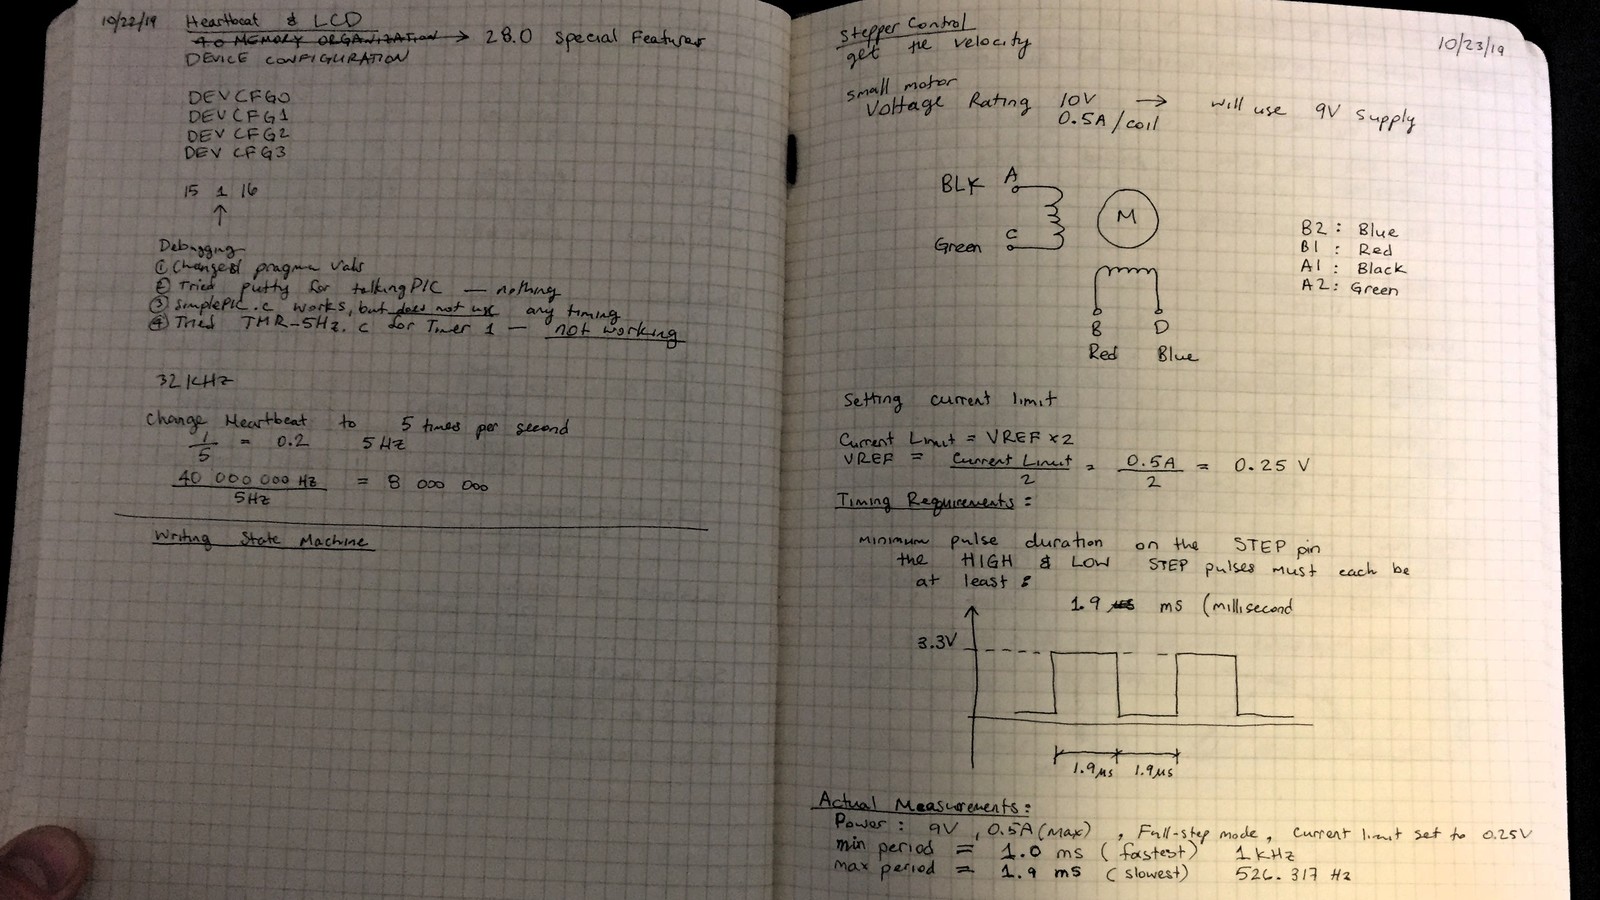 10/22/19 Heartbeat & LCD
4.0 MEMORY ORGANIZATION → 28.0 Special Features
DEVICE CONFIGURATION
DEVCFG0
DEVCFG1
DEVCFG2
DEVCFG3
15 1 16
↑
Debugging
① Changed pragma vals
② Tried putty for talkingPIC — nothing
③ SimplePIC.c works, but does not use any timing
④ Tried TMR-5Hz.c for Timer 1 — not working
32 KHz
Change Heartbeat to 5 times per second
1/5 = 0.2 5 Hz
40 000 000 Hz / 5Hz = 8 000 000
Writing State Machine
10/23/19
Stepper Control
get the velocity
small motor
Voltage Rating 10V → will use 9V supply
0.5A/coil
BLK A
M
Green C
B2: Blue
B1: Red
A1: Black
A2: Green
B D
Red Blue
Setting current limit
Current Limit = VREF x2
VREF = Current Limit / 2 = 0.5A / 2 = 0.25 V
Timing Requirements:
minimum pulse duration on the STEP pin
the HIGH & LOW STEP pulses must each be
at least:
1.9 ms (millisecond
3.3V
1.9µs 1.9µs
Actual Measurements:
Power: 9V, 0.5A (Max), Full-step mode, Current limit set to 0.25V
min period = 1.0 ms (fastest) 1 KHz
max period = 1.9 ms (slowest) 526.317 Hz